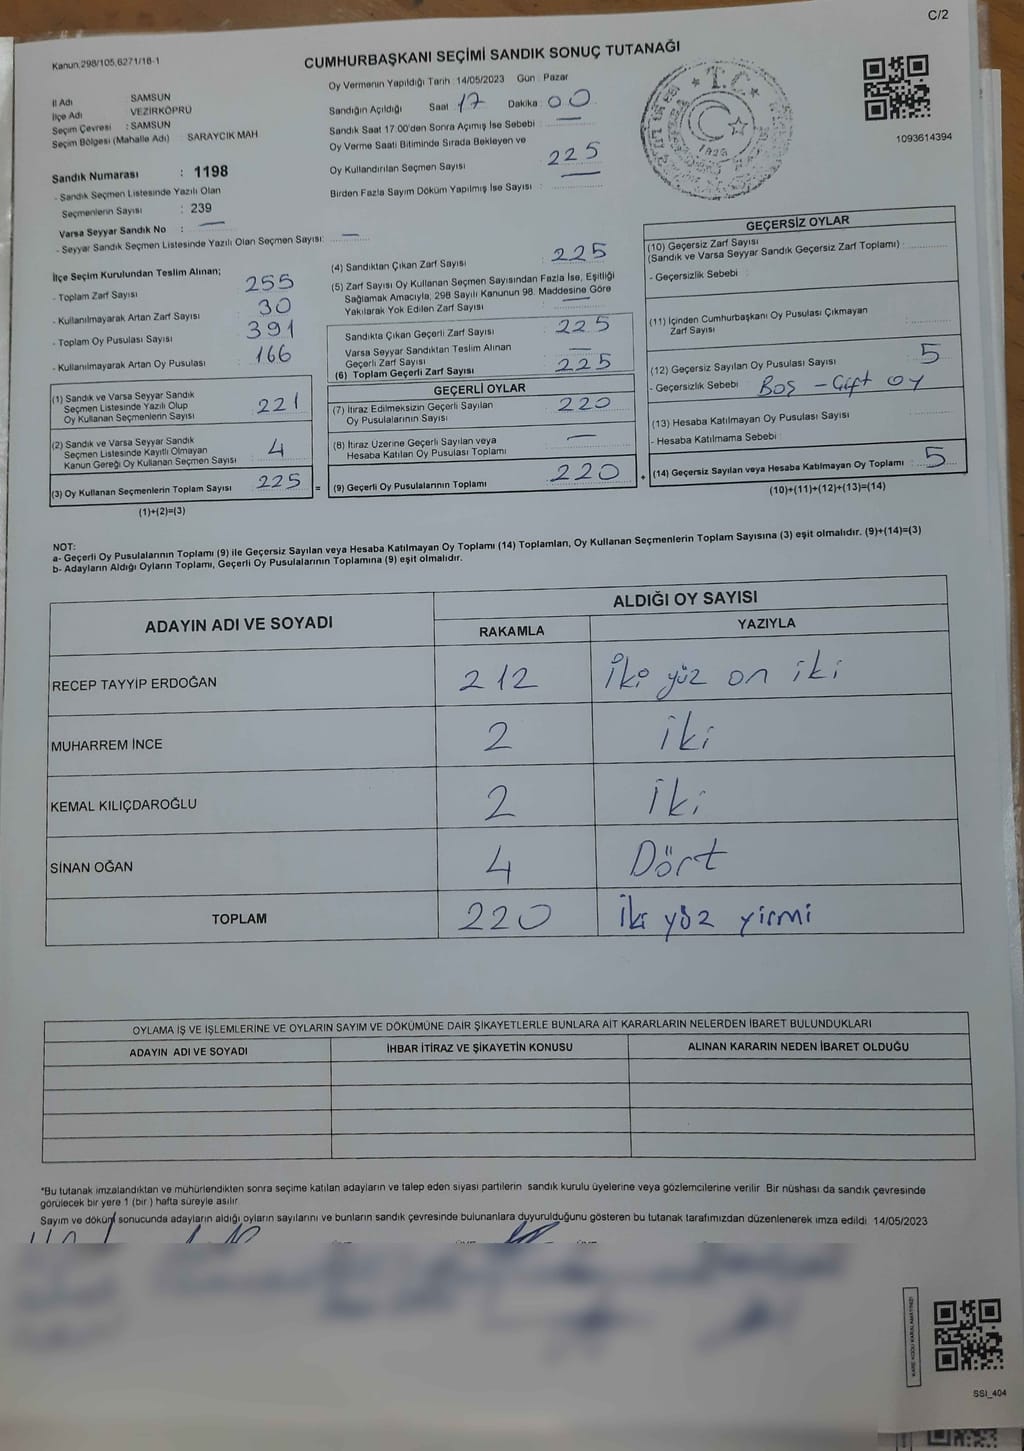 C/2
Kanun,298/105,6271/18-1
CUMHURBAŞKANI SEÇİMİ SANDIK SONUÇ TUTANAĞI
İl Adı SAMSUN
İlçe Adı VEZİRKÖPRÜ
Seçim Çevresi : SAMSUN
Seçim Bölgesi (Mahalle Adı) SARAYCIK MAH
Sandık Numarası : 1198
- Sandık Seçmen Listesinde Yazılı Olan
Seçmenlerin Sayısı : 239
Varsa Seyyar Sandık No : —
- Seyyar Sandık Seçmen Listesinde Yazılı Olan Seçmen Sayısı: —
Oy Vermenin Yapıldığı Tarih : 14/05/2023 Gün : Pazar
Sandığın Açıldığı Saat 17 Dakika : 00
Sandık Saat 17.00'den Sonra Açımış İse Sebebi : —
Oy Verme Saati Bitiminde Sırada Bekleyen ve
Oy Kullandırılan Seçmen Sayısı : 225
Birden Fazla Sayım Döküm Yapılmış İse Sayısı : —
T.C.
1093614394
İlçe Seçim Kurulundan Teslim Alınan;
- Toplam Zarf Sayısı 255
- Kullanılmayarak Artan Zarf Sayısı 30
- Toplam Oy Pusulası Sayısı 391
- Kullanılmayarak Artan Oy Pusulası 166
(1) Sandık ve Varsa Seyyar Sandık
Seçmen Listesinde Yazılı Olup
Oy Kullanan Seçmenlerin Sayısı 221
(2) Sandık ve Varsa Seyyar Sandık
Seçmen Listesinde Kayıtlı Olmayan
Kanun Gereği Oy Kullanan Seçmen Sayısı 4
(3) Oy Kullanan Seçmenlerin Toplam Sayısı 225 =
(1)+(2)=(3)
(4) Sandıktan Çıkan Zarf Sayısı 225
(5) Zarf Sayısı Oy Kullanan Seçmen Sayısından Fazla İse, Eşitliği
Sağlamak Amacıyla, 298 Sayılı Kanunun 98. Maddesine Göre
Yakılarak Yok Edilen Zarf Sayısı —
Sandıkta Çıkan Geçerli Zarf Sayısı 225
Varsa Seyyar Sandıktan Teslim Alınan
Geçerli Zarf Sayısı —
(6) Toplam Geçerli Zarf Sayısı 225
GEÇERLİ OYLAR
(7) İtiraz Edilmeksizin Geçerli Sayılan
Oy Pusulalarının Sayısı 220
(8) İtiraz Üzerine Geçerli Sayılan veya
Hesaba Katılan Oy Pusulası Toplamı —
(9) Geçerli Oy Pusulalarının Toplamı 220 +
GEÇERSİZ OYLAR
(10) Geçersiz Zarf Sayısı
(Sandık ve Varsa Seyyar Sandık Geçersiz Zarf Toplamı) :
- Geçersizlik Sebebi :
(11) İçinden Cumhurbaşkanı Oy Pusulası Çıkmayan
Zarf Sayısı :
(12) Geçersiz Sayılan Oy Pusulası Sayısı 5
- Geçersizlik Sebebi Boş – Çift oy
(13) Hesaba Katılmayan Oy Pusulası Sayısı
- Hesaba Katılmama Sebebi :
(14) Geçersiz Sayılan veya Hesaba Katılmayan Oy Toplamı : 5
(10)+(11)+(12)+(13)=(14)
NOT:
a- Geçerli Oy Pusulalarının Toplamı (9) ile Geçersiz Sayılan veya Hesaba Katılmayan Oy Toplamı (14) Toplamları, Oy Kullanan Seçmenlerin Toplam Sayısına (3) eşit olmalıdır. (9)+(14)=(3)
b- Adayların Aldığı Oyların Toplamı, Geçerli Oy Pusulalarının Toplamına (9) eşit olmalıdır.
ADAYIN ADI VE SOYADI ALDIĞI OY SAYISI
RAKAMLA YAZIYLA
RECEP TAYYİP ERDOĞAN 212 İki yüz on iki
MUHARREM İNCE 2 iki
KEMAL KILIÇDAROĞLU 2 İki
SİNAN OĞAN 4 Dört
TOPLAM 220 İki yüz yirmi
OYLAMA İŞ VE İŞLEMLERİNE VE OYLARIN SAYIM VE DÖKÜMÜNE DAİR ŞİKAYETLERLE BUNLARA AİT KARARLARIN NELERDEN İBARET BULUNDUKLARI
ADAYIN ADI VE SOYADI İHBAR İTİRAZ VE ŞİKAYETİN KONUSU ALINAN KARARIN NEDEN İBARET OLDUĞU
*Bu tutanak imzalandıktan ve mühürlendikten sonra seçime katılan adayların ve talep eden siyasi partilerin sandık kurulu üyelerine veya gözlemcilerine verilir Bir nüshası da sandık çevresinde
görülecek bir yere 1 (bir ) hafta süreyle asılır
Sayım ve döküm sonucunda adayların aldığı oyların sayılarını ve bunların sandık çevresinde bulunanlara duyurulduğunu gösteren bu tutanak tarafımızdan düzenlenerek imza edildi. 14/05/2023
SSİ_404